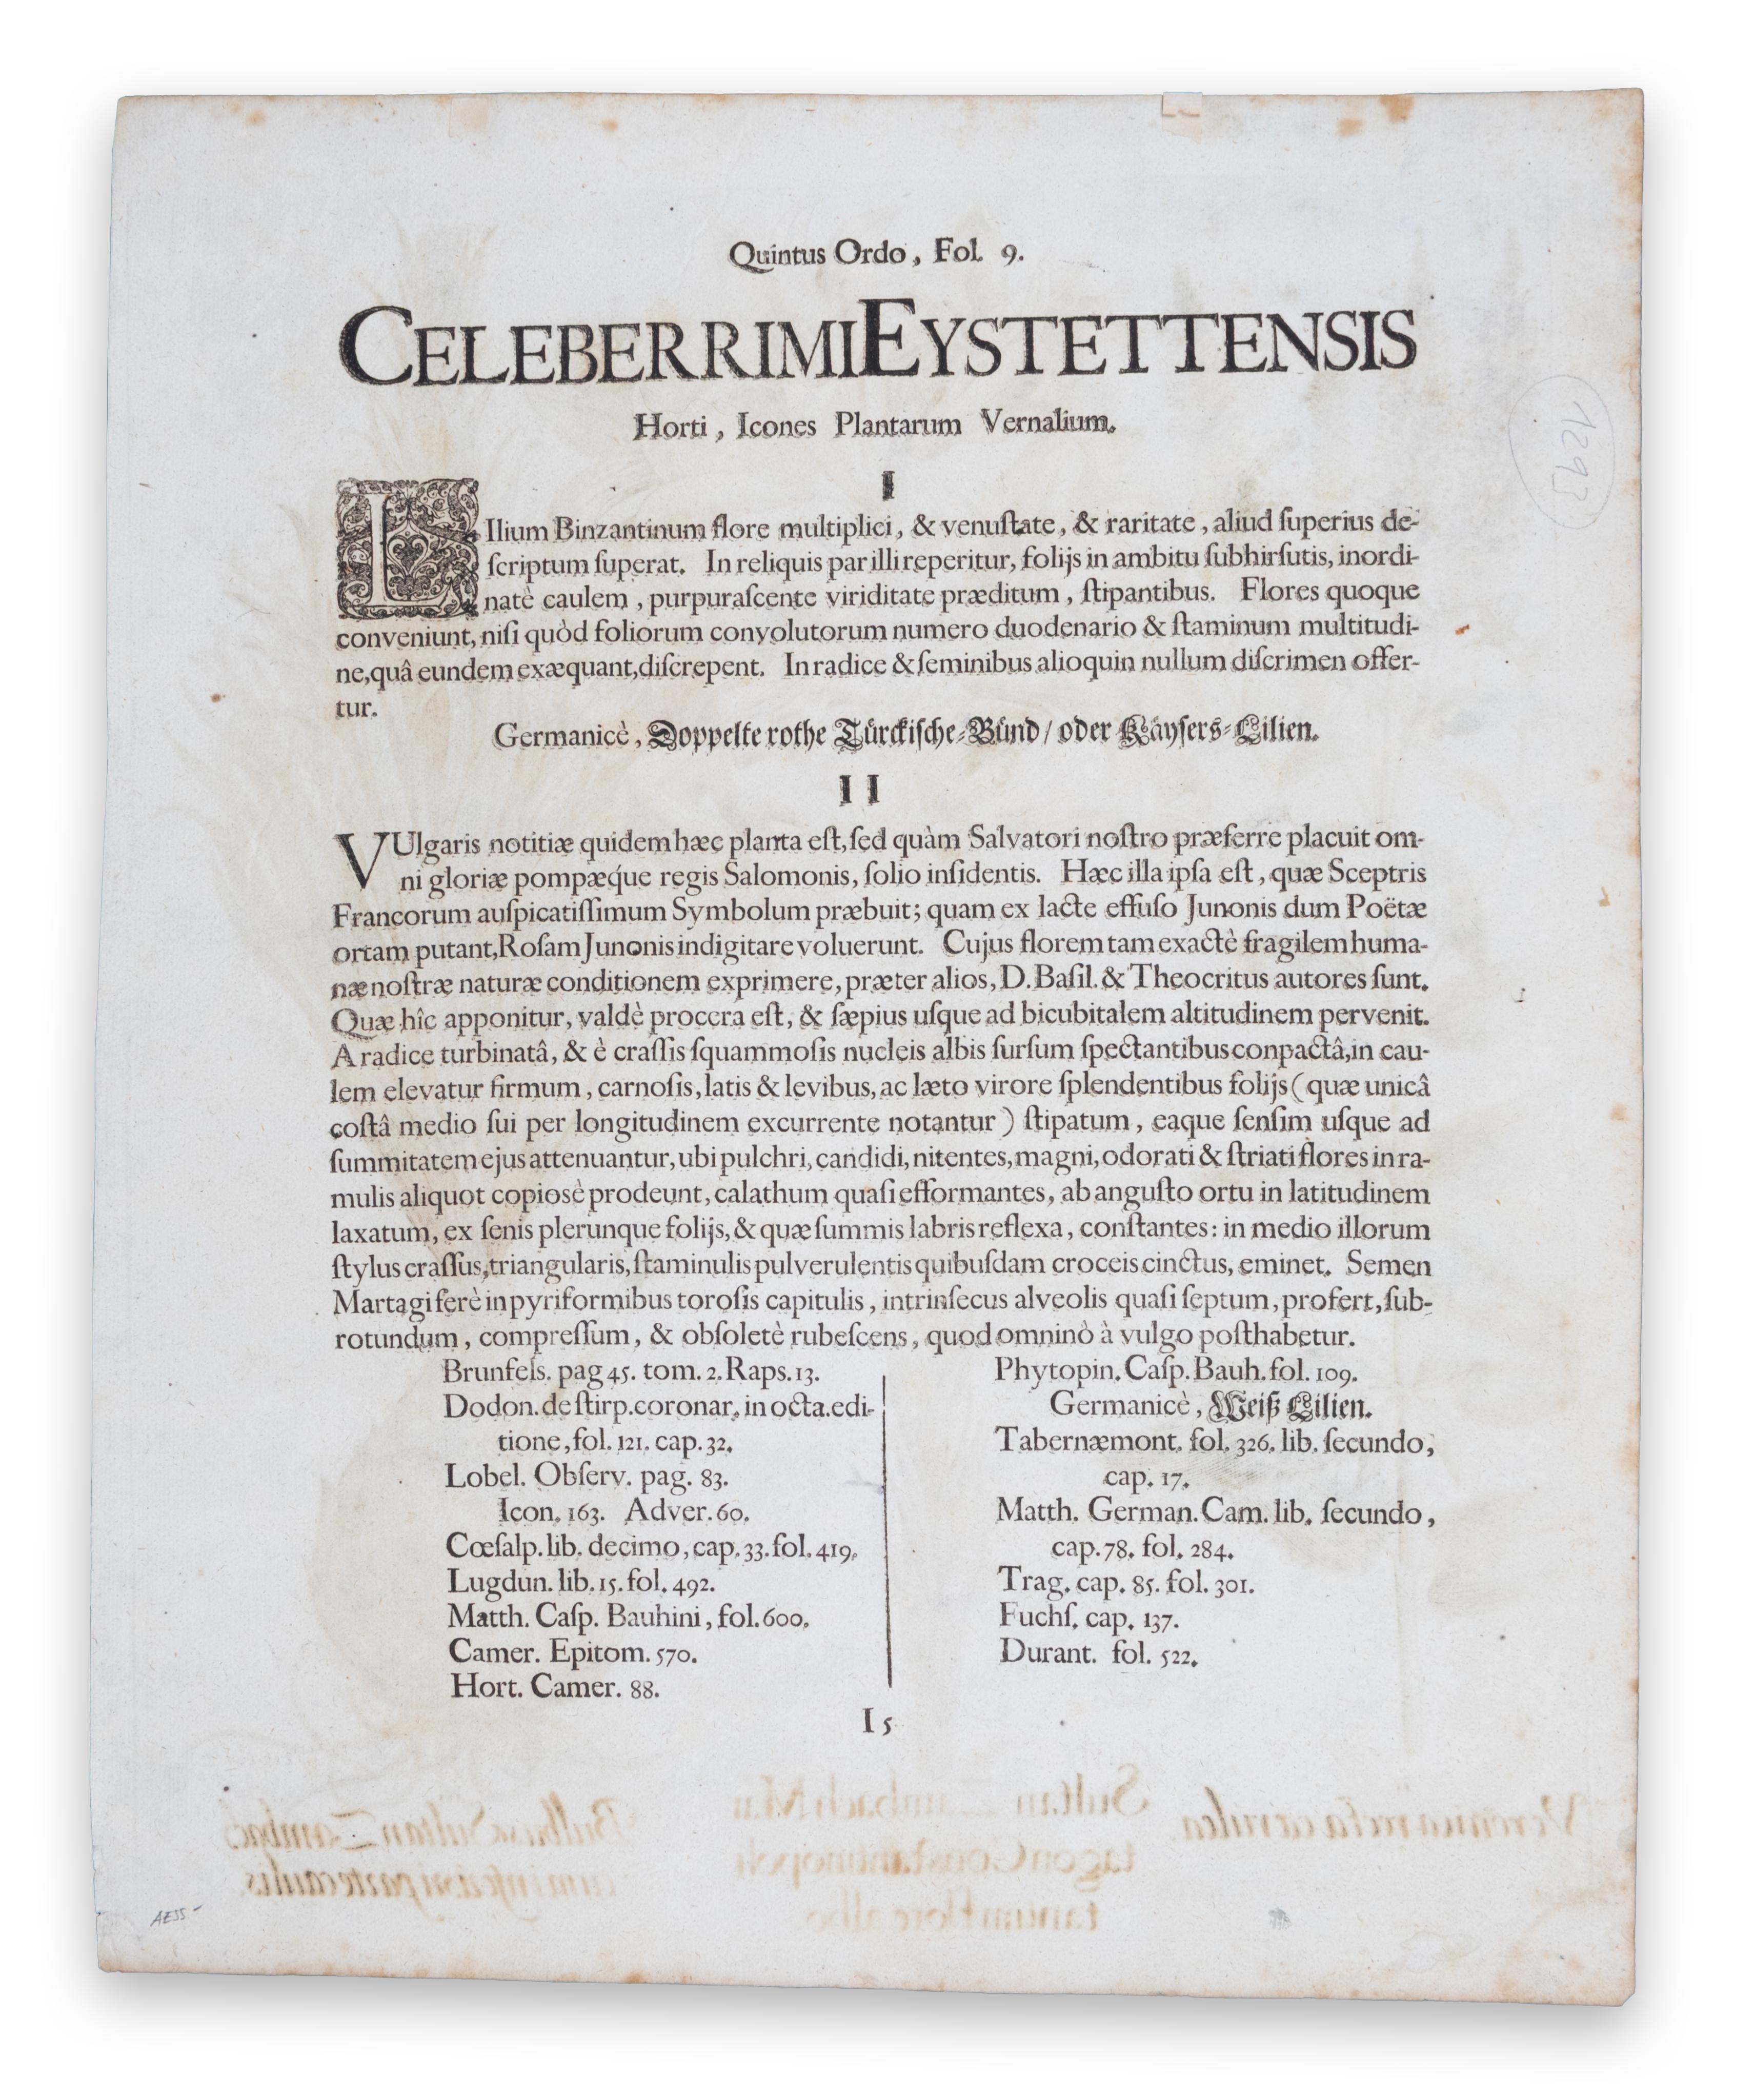 Quintus Ordo, Fol. 9.
CELEBERRIMI EYSTETTENSIS
Horti, Icones Plantarum Vernalium.
I
LIlium Binzantinum flore multiplici, & venuſtate, & raritate, aliud ſuperius de-
ſcriptum ſuperat. In reliquis par illi reperitur, folijs in ambitu ſubhirſutis, inordi-
natè caulem, purpuraſcente viriditate præditum, ſtipantibus. Flores quoque
conveniunt, niſi quòd foliorum convolutorum numero duodenario & ſtaminum multitudi-
ne, quâ eundem exæquant, diſcrepent. In radice & ſeminibus alioquin nullum diſcrimen offer-
tur.
Germanicè, Doppelte rothe Türckiſche-Bünd / oder Käyſers-Lilien.
II
VUlgaris notitiæ quidem hæc planta eſt, ſed quàm Salvatori noſtro præferre placuit om-
ni gloriæ pompæq́ue regis Salomonis, ſolio inſidentis. Hæc illa ipſa eſt, quæ Sceptris
Francorum auſpicatiſſimum Symbolum præbuit; quam ex lacte effuſo Junonis dum Poëtæ
ortam putant, Roſam Junonis indigitare voluerunt. Cujus florem tam exactè fragilem huma-
næ noſtræ naturæ conditionem exprimere, præter alios, D. Baſil. & Theocritus autores ſunt.
Quæ hîc apponitur, valdè procera eſt, & ſæpius uſque ad bicubitalem altitudinem pervenit.
A radice turbinatâ, & è craſſis ſquammoſis nucleis albis ſurſum ſpectantibus conpactâ, in cau-
lem elevatur firmum, carnoſis, latis & levibus, ac læto virore ſplendentibus folijs (quæ unicâ
coſtâ medio ſui per longitudinem excurrente notantur) ſtipatum, eaque ſenſim uſque ad
ſummitatem ejus attenuantur, ubi pulchri, candidi, nitentes, magni, odorati & ſtriati flores in ra-
mulis aliquot copiosè prodeunt, calathum quaſi efformantes, ab anguſto ortu in latitudinem
laxatum, ex ſenis plerunque folijs, & quæ ſummis labris reflexa, conſtantes: in medio illorum
ſtylus craſſus, triangularis, ſtaminulis pulverulentis quibuſdam croceis cinctus, eminet. Semen
Martagi ferè in pyriformibus toroſis capitulis, intrinſecus alveolis quaſi ſeptum, profert, ſub-
rotundum, compreſſum, & obſoletè rubeſcens, quod omninò à vulgo poſthabetur.
Brunfelſ. pag 45. tom. 2. Raps. 13.
Dodon. de ſtirp. coronar. in octa. edi-
tione, fol. 121. cap. 32.
Lobel. Obſerv. pag. 83.
Icon. 163. Adver. 60.
Cœſalp. lib. decimo, cap. 33. fol. 419.
Lugdun. lib. 15. fol. 492.
Matth. Caſp. Bauhini, fol. 600.
Camer. Epitom. 570.
Hort. Camer. 88.
Phytopin. Caſp. Bauh. fol. 109.
Germanicè, Weiß Lilien.
Tabernæmont. fol. 326. lib. ſecundo,
cap. 17.
Matth. German. Cam. lib. ſecundo,
cap. 78. fol. 284.
Trag. cap. 85. fol. 301.
Fuchſ. cap. 137.
Durant. fol. 522.
I 5
1293